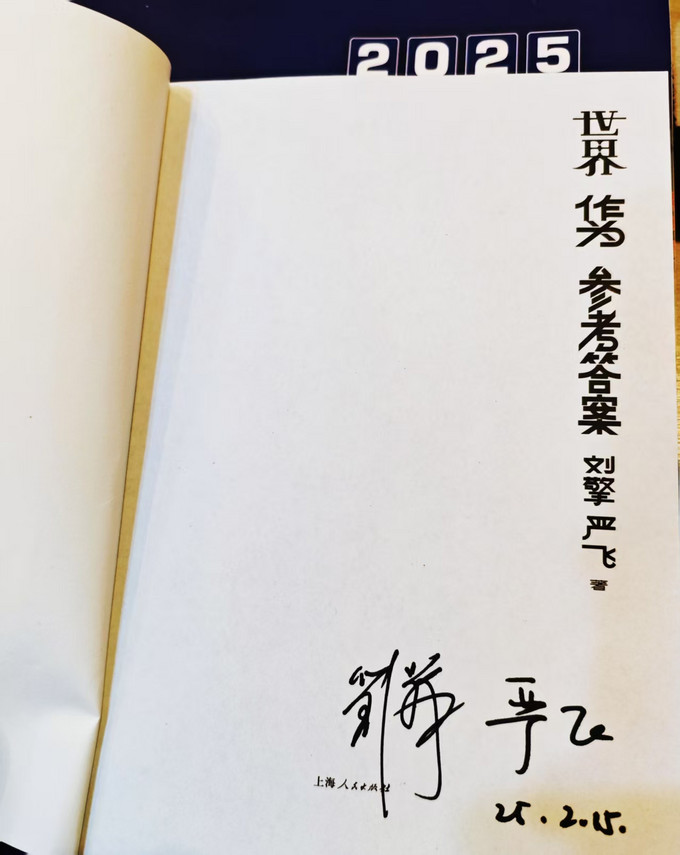 2025
世界
作为
参考答案
刘擎
严飞
著
刘擎 严飞
上海人民出版社
25.2.15.